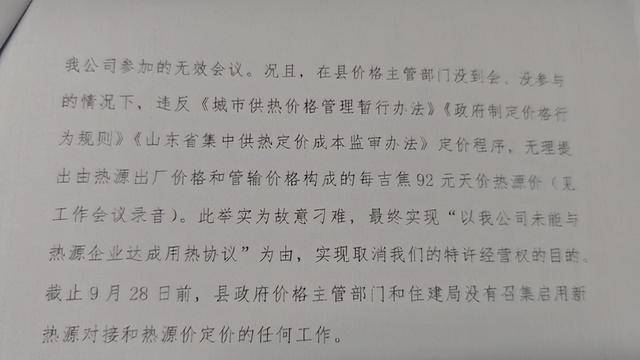 我公司参加的无效会议。况且，在县价格主管部门没到会、没参与
的情况下，违反《城市供热价格管理暂行办法》《政府制定价格行
为规则》《山东省集中供热定价成本监审办法》定价程序，无理提
出由热源出厂价格和管输价格构成的每吉焦92元天价热源价（见
工作会议录音）。此举实为故意刁难，最终实现“以我公司未能与
热源企业达成用热协议”为由，实现取消我们的特许经营权的目的。
截止9月28日前，县政府价格主管部门和住建局没有召集启用新
热源对接和热源价定价的任何工作。